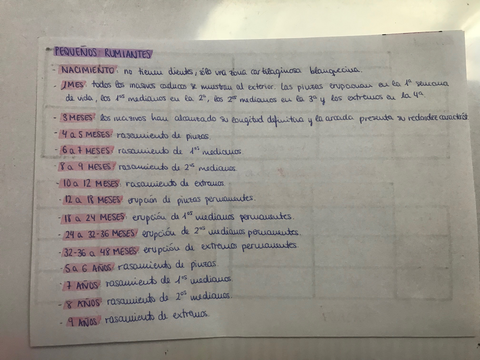 PEQUEÑOS RUMIANTES
- NACIMIENTO: no tienen dientes, sólo una zona cartilaginosa blanquecina.
- 1 MES: todos los mamones caducos se muestran al exterior. Las pinzas erupcionan en la 1ª semana
de vida, los 1os medianos en la 2ª, los 2os medianos en la 3ª y los extremos en la 4ª
- 3 MESES: los han alcanzado su longitud definitiva y la arcada presenta su redondez
- 4 a 5 MESES: rasamiento de pinzas.
- 6 a 7 MESES: rasamiento de 1os medianos.
- 8 a 9 MESES: rasamiento de 2os medianos
- 10 a 12 MESES: rasamiento de extremos
- 12 a 18 MESES: erupción de pinzas permanentes.
- 18 a 24 MESES: erupción de 1os medianos permanentes.
- 24 a 32-36 MESES: erupción de 2os medianos permanentes.
- 32-36 a 48 MESES: erupción de extremos permanentes
- 5 a 6 AÑOS: rasamiento de pinzas
- 7 AÑOS: rasamiento de 1os medianos
- 8 AÑOS: rasamiento de 2os medianos
- 9 AÑOS: rasamiento de extremos